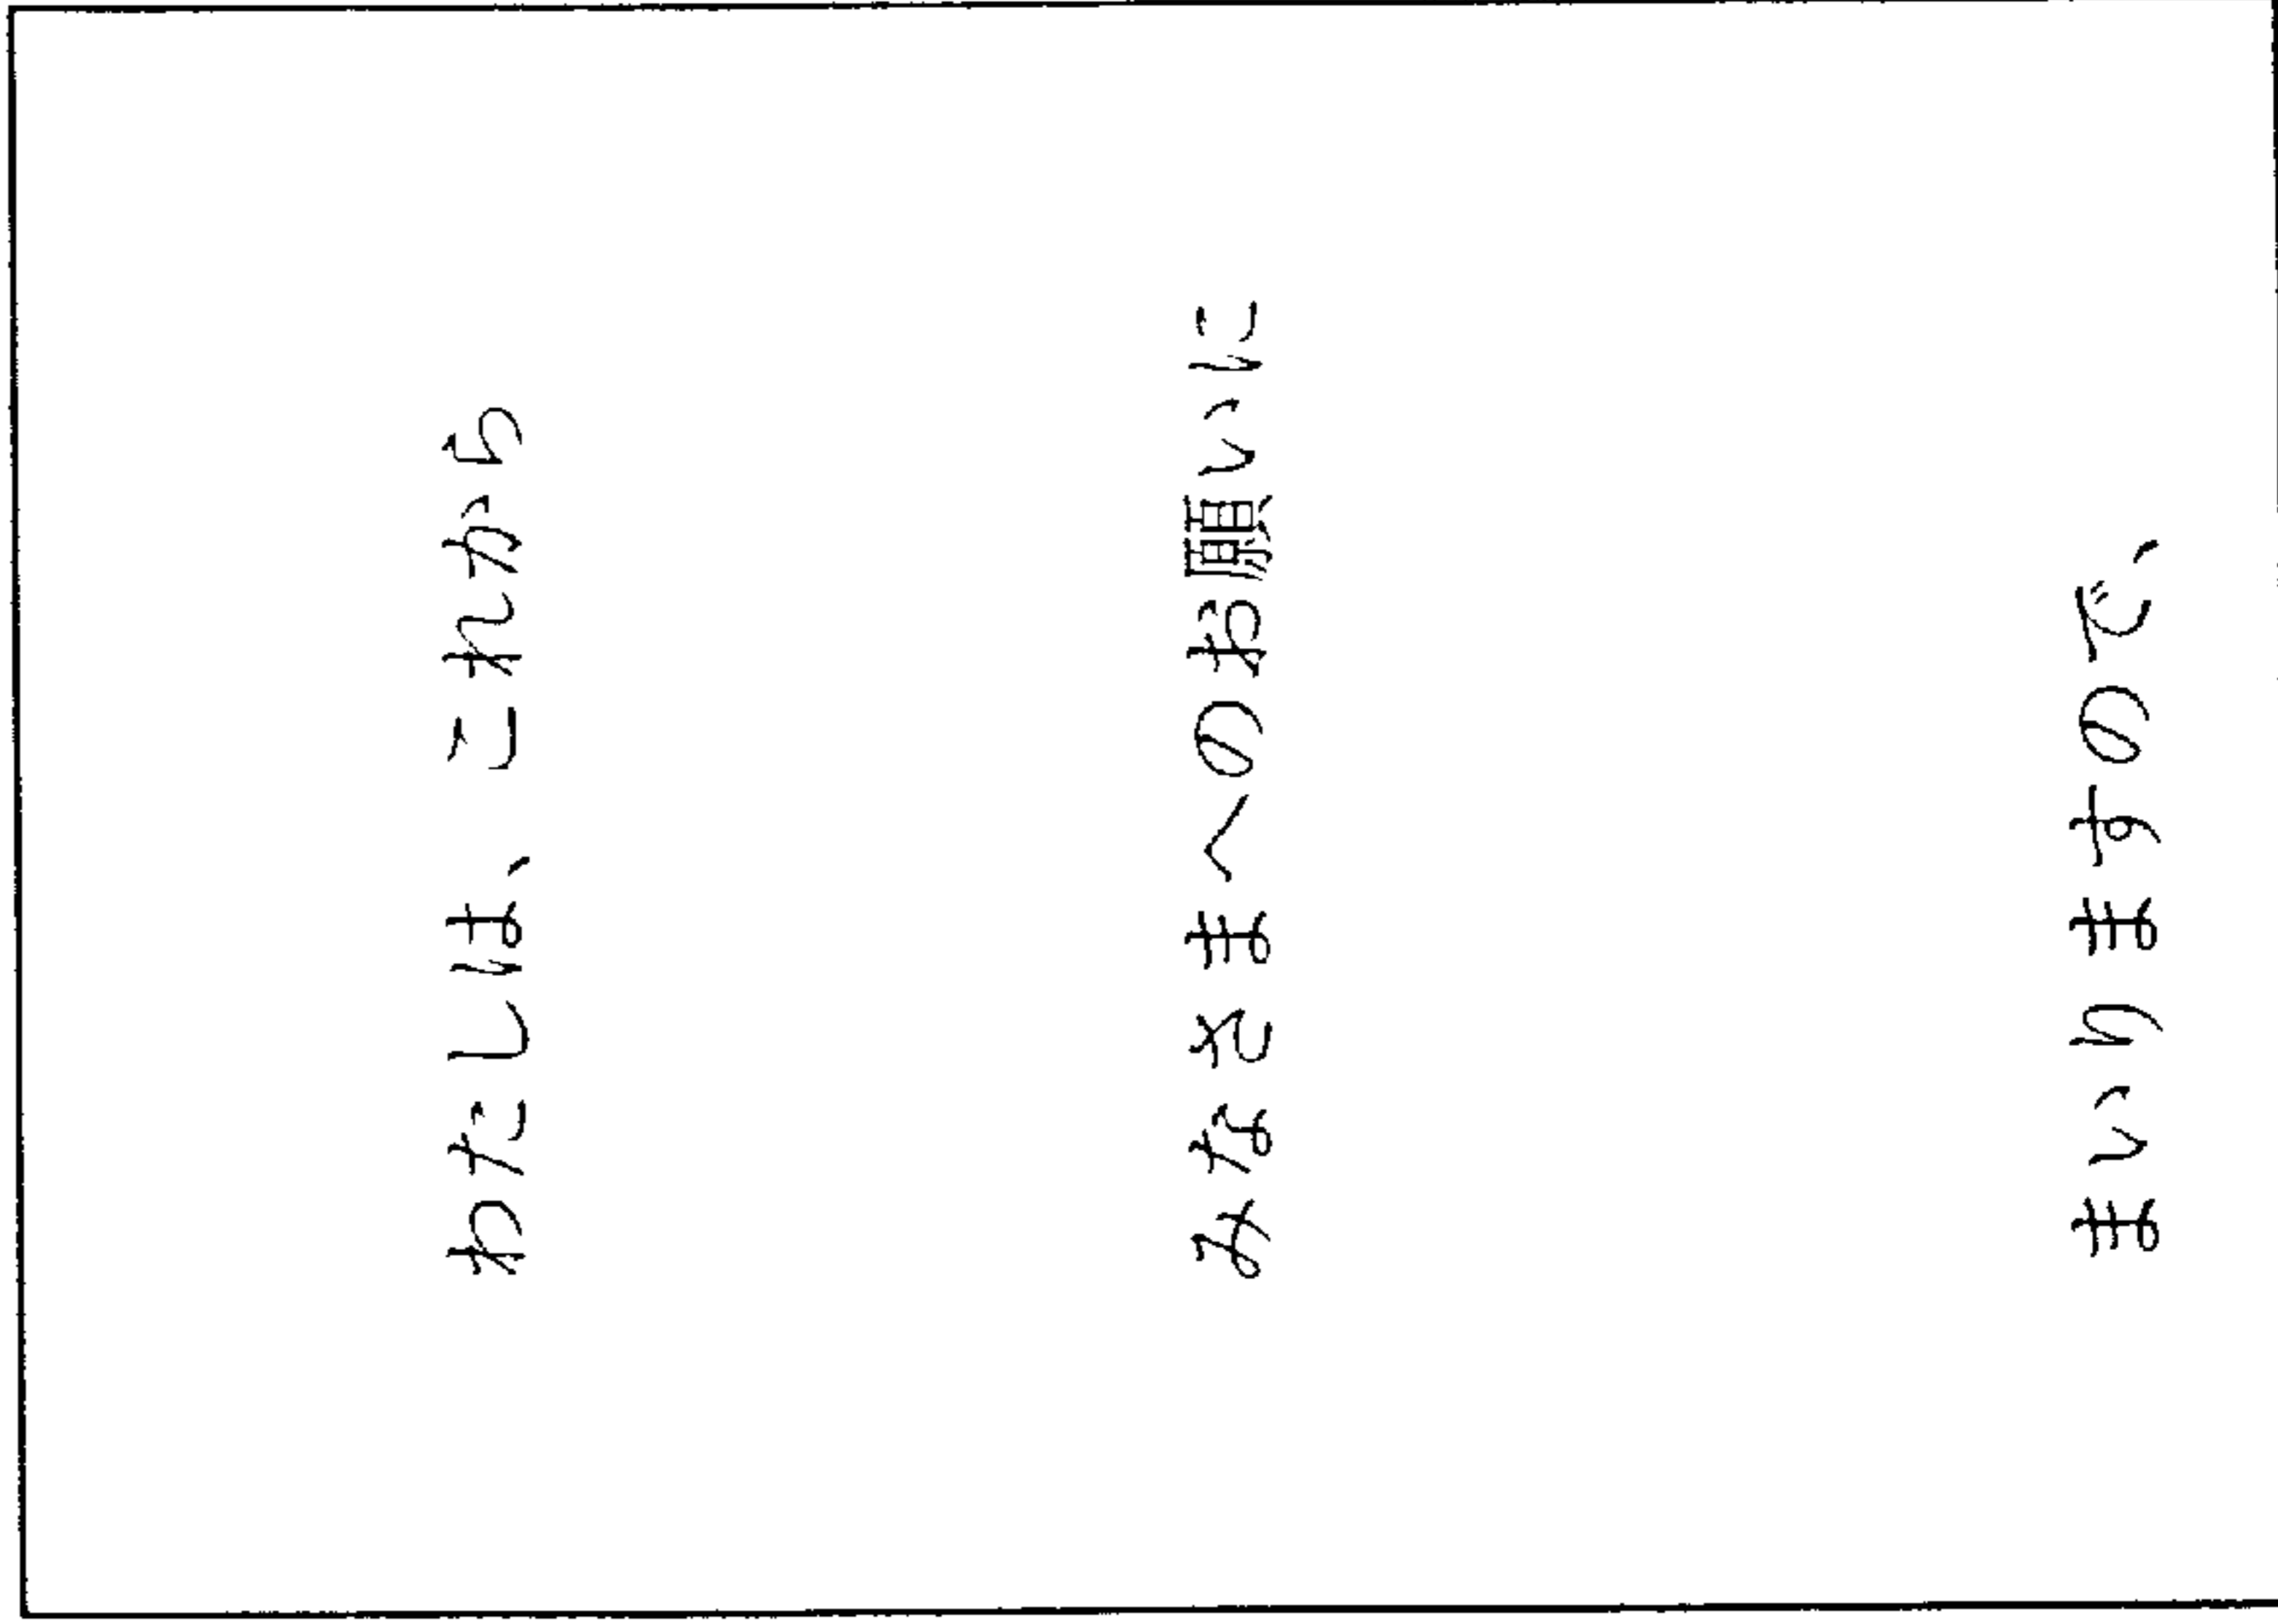 わたしは、これから
みなさまへのお願いに
まいりますので、